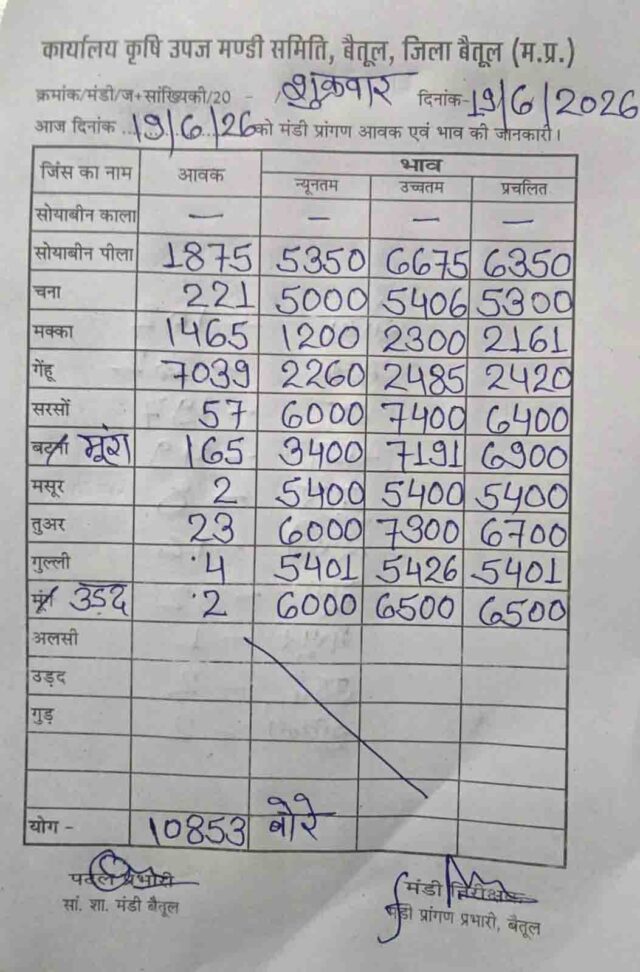 कार्यालय कृषि उपज मण्डी समिति, बैतूल, जिला बैतूल (म.प्र.)
क्रमांक/मंडी/ज+सांख्यिकी/20 - / शुक्रवार दिनांक-19/6/2026
आज दिनांक ..19/6/26 को मंडी प्रांगण आवक एवं भाव की जानकारी।
जिंस का नाम आवक भाव
न्यूनतम उच्चतम प्रचलित
सोयाबीन काला — — — —
सोयाबीन पीला 1875 5350 6675 6350
चना 221 5000 5406 5300
मक्का 1465 1200 2300 2161
गेंहू 7039 2260 2485 2420
सरसों 57 6000 7400 6400
बटना मूंग 165 3400 7191 6900
मसूर 2 5400 5400 5400
तुअर 23 6000 7300 6700
गुल्ली 4 5401 5426 5401
मूंग उड़द 2 6000 6500 6500
अलसी
उड़द
गुड़
योग - 10853 बोरे
प्रभारी
सां. शा. मंडी बैतूल
मंडी निरीक्षक
मंडी प्रांगण प्रभारी, बैतूल